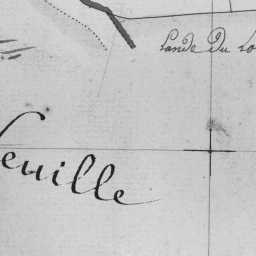 Lande Du Lo
euille